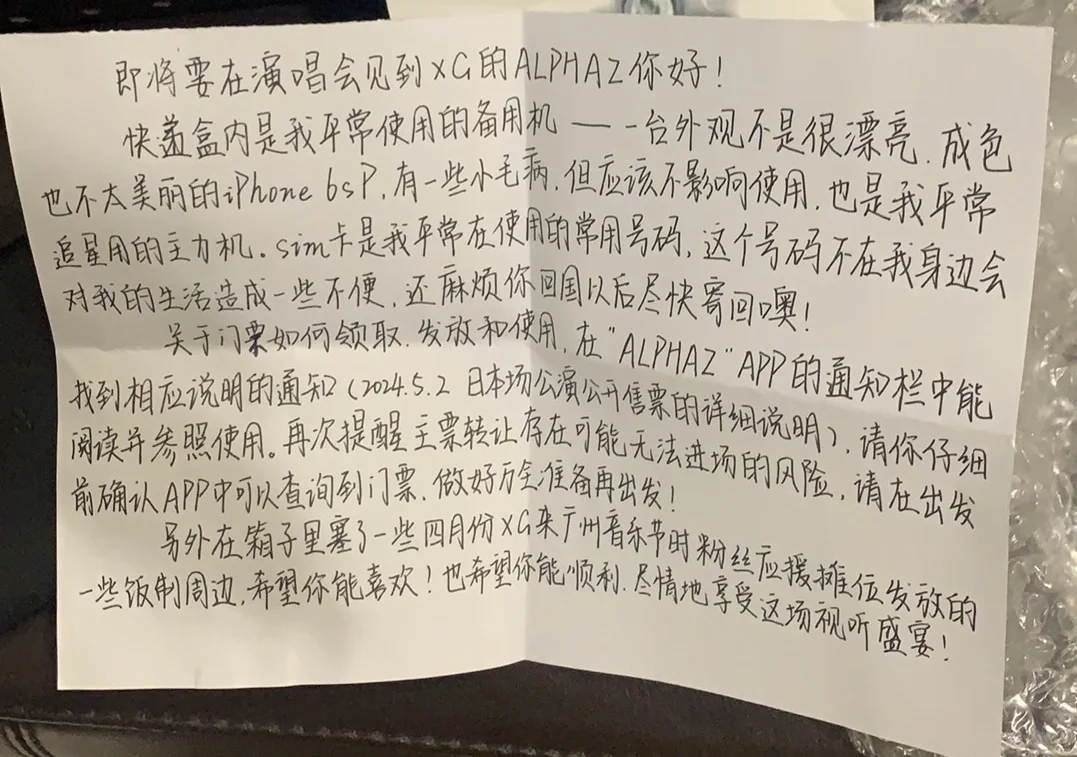 即将要在演唱会见到XG的ALPHAZ你好！
快递盒内是我平常使用的备用机——一台外观不是很漂亮、成色
也不太美丽的iPhone 6sP，有一些小毛病，但应该不影响使用，也是我平常
追星用的主力机。sim卡是我平常在使用的常用号码，这个号码不在我身边会
对我的生活造成一些不便，还麻烦你回国以后尽快寄回噢！
关于门票如何领取、发放和使用，在"ALPHAZ"APP的通知栏中能
找到相应说明的通知（2024.5.2 日本场公演公开售票的详细说明），请你仔细
阅读并参照使用。再次提醒主票转让存在可能无法进场的风险，请在出发
前确认APP中可以查询到门票，做好万全准备再出发！
另外在箱子里塞了一些四月份XG来广州音乐节时粉丝应援摊位发放的
一些饭制周边，希望你能喜欢！也希望你能顺利、尽情地享受这场视听盛宴！